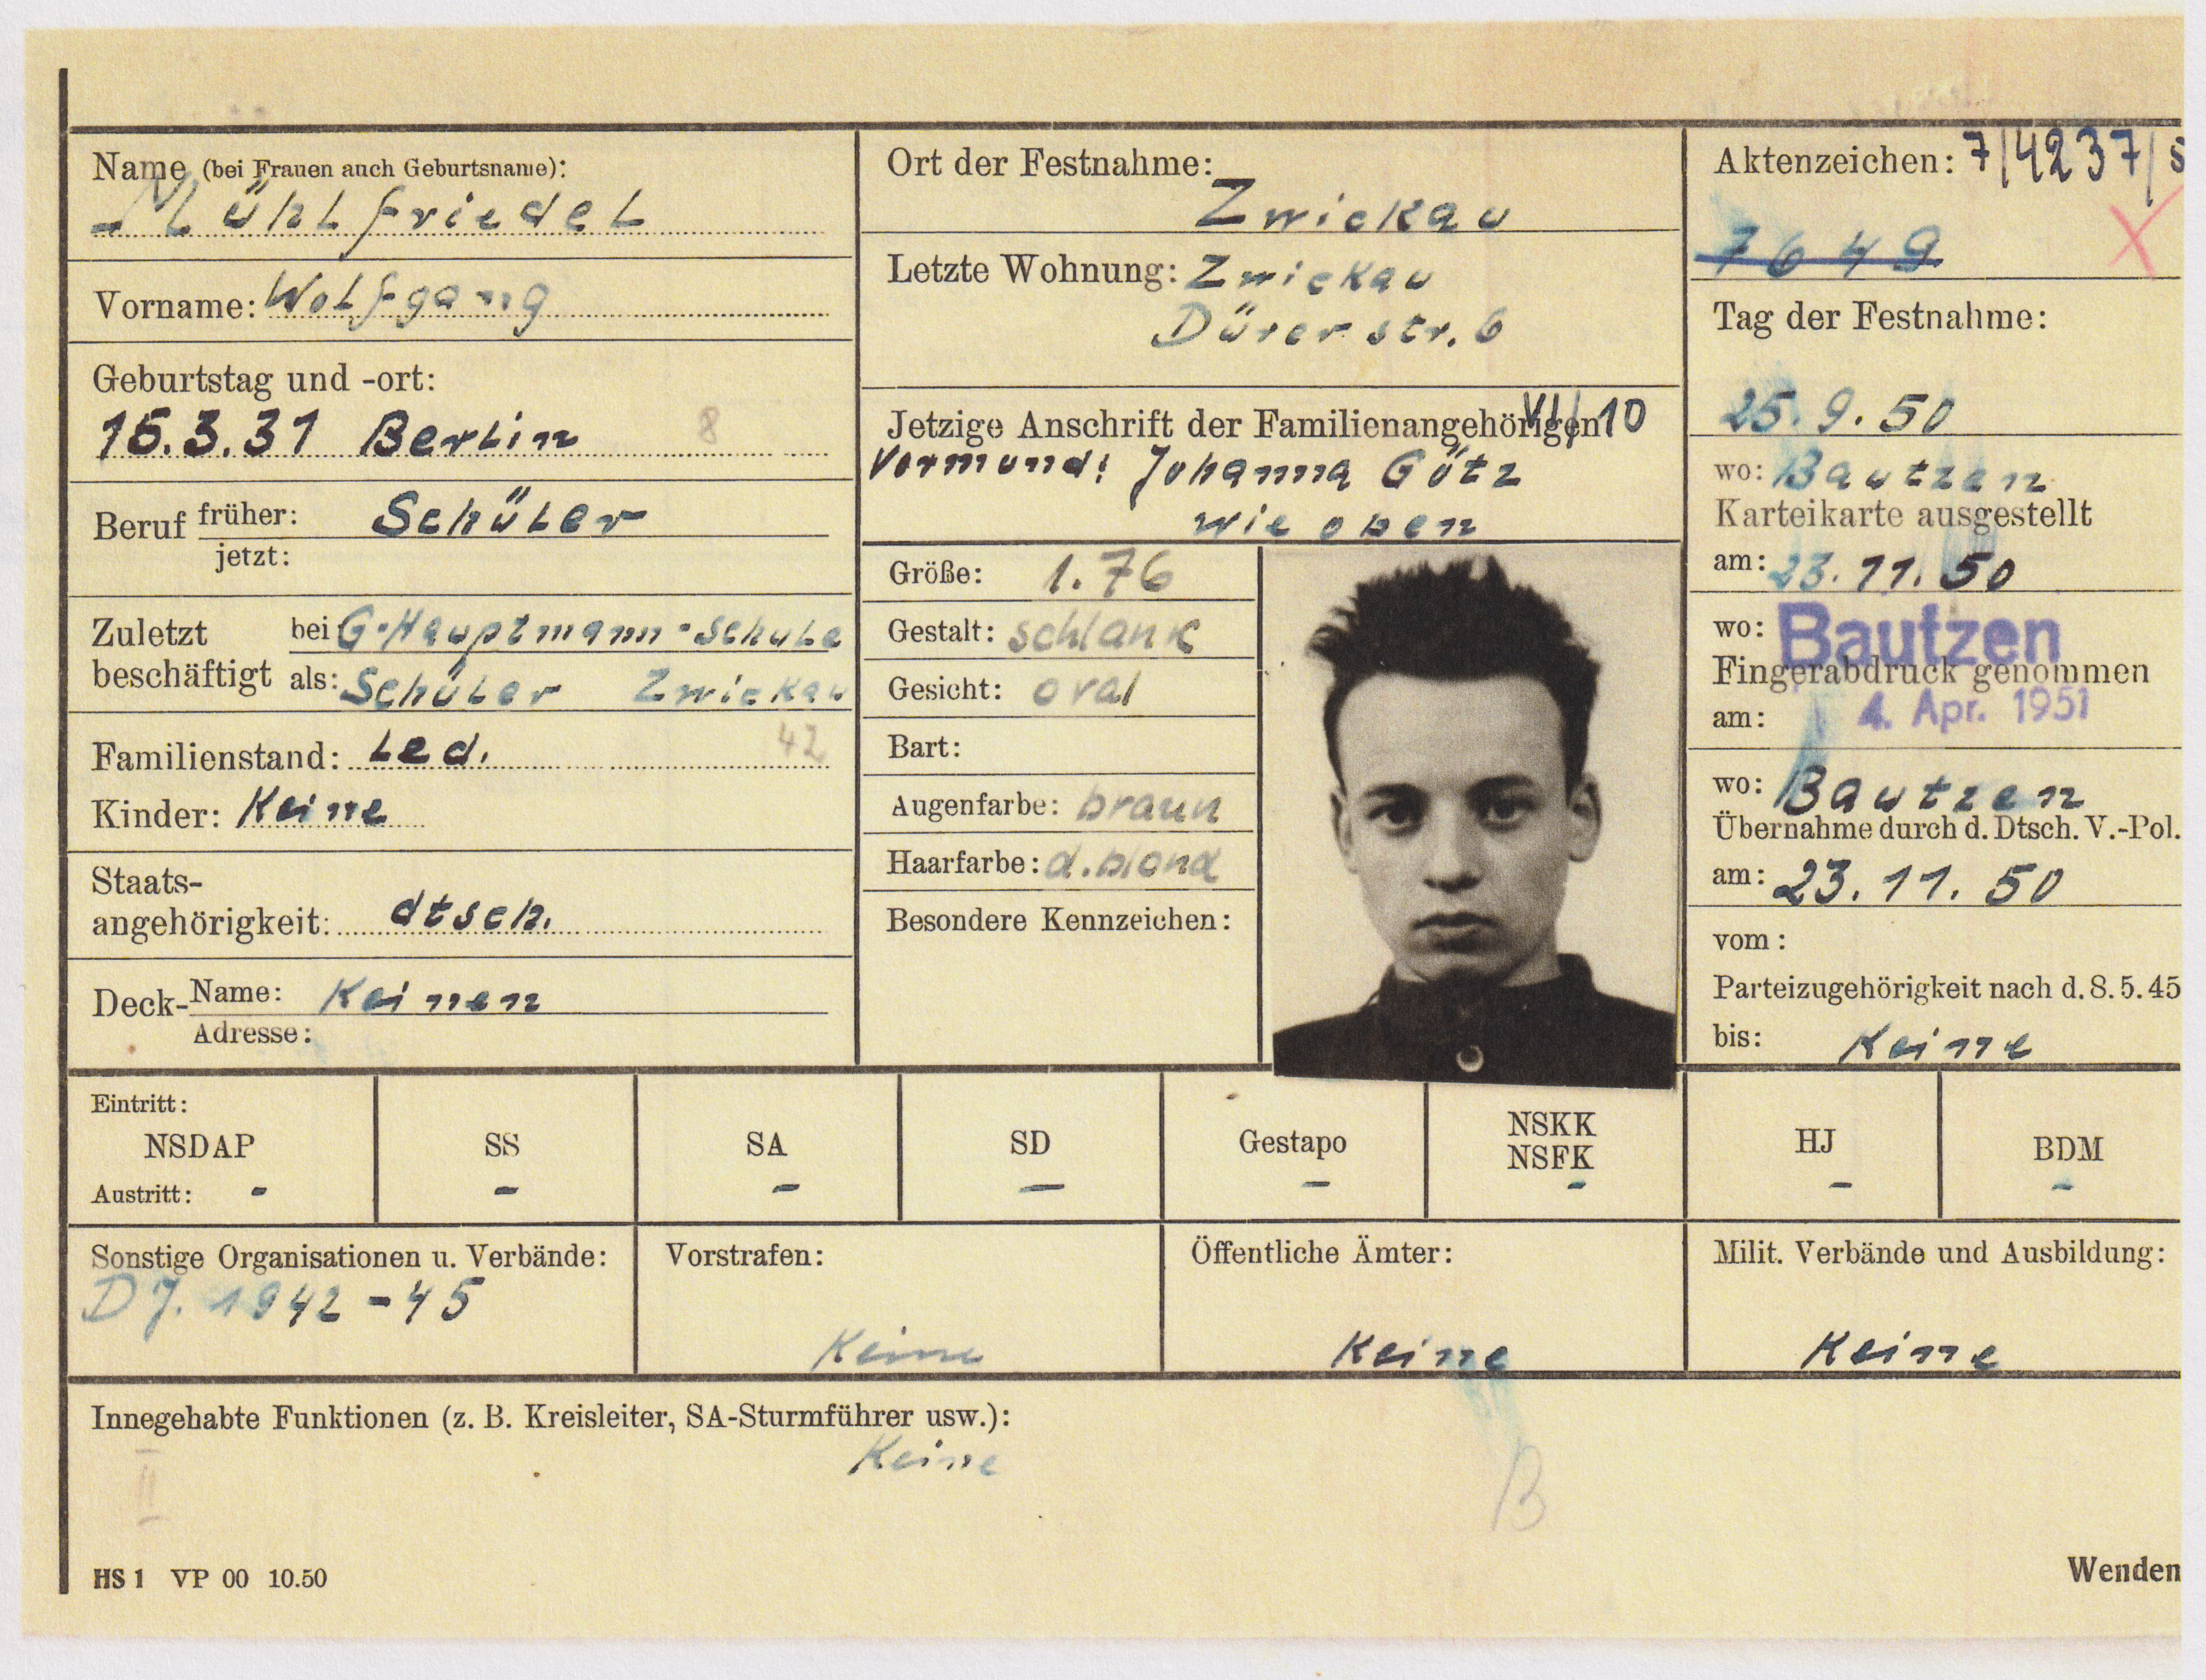 Name (bei Frauen auch Geburtsname):
Mühlfriedel
Vorname: Wolfgang
Geburtstag und -ort:
15.3.31 Berlin 8
Beruf früher: Schüler
jetzt:
Zuletzt beschäftigt bei G.-Hauptmann-Schule
als: Schüler Zwickau
Familienstand: Led. 42
Kinder: Keine
Staats-
angehörigkeit: dtsch.
Deck- Name: Keinen
Adresse:
Ort der Festnahme:
Zwickau
Letzte Wohnung: Zwickau
Dürerstr. 6
Jetzige Anschrift der Familienangehörigen VI/10
Vormund: Johanna Götz
wie oben
Größe: 1.76
Gestalt: schlank
Gesicht: oval
Bart:
Augenfarbe: braun
Haarfarbe: d.blond
Besondere Kennzeichen:
Aktenzeichen: 7/4237/
7649 X
Tag der Festnahme:
25.9.50
wo: Bautzen
Karteikarte ausgestellt
am: 23.11.50
wo: Bautzen
Fingerabdruck genommen
am: 4. Apr. 1951
wo: Bautzen
Übernahme durch d. Dtsch. V.-Pol.
am: 23.11.50
vom:
Parteizugehörigkeit nach d. 8.5.45
bis: Keine
Eintritt:
NSDAP SS SA SD Gestapo NSKK NSFK HJ BDM
Austritt: - - - - - - - -
Sonstige Organisationen u. Verbände:
DJ. 1942-45
Vorstrafen:
Keine
Öffentliche Ämter:
Keine
Milit. Verbände und Ausbildung:
Keine
Innegehabte Funktionen (z. B. Kreisleiter, SA-Sturmführer usw.):
Keine
II
B
HS 1 VP 00 10.50
Wenden